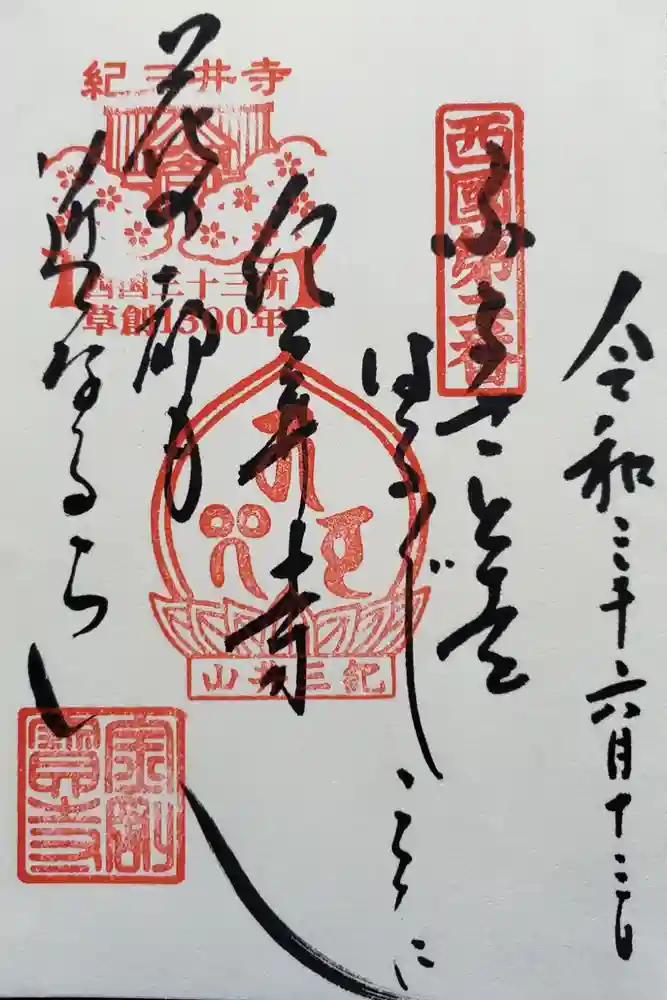 令和三年六月十二日
西國第二番
ふるさとを
はるばるここに
紀三井寺
花の都も
近くなるらん
紀三井寺
西国三十三所
草創1300年
紀三井山
金剛寳寺